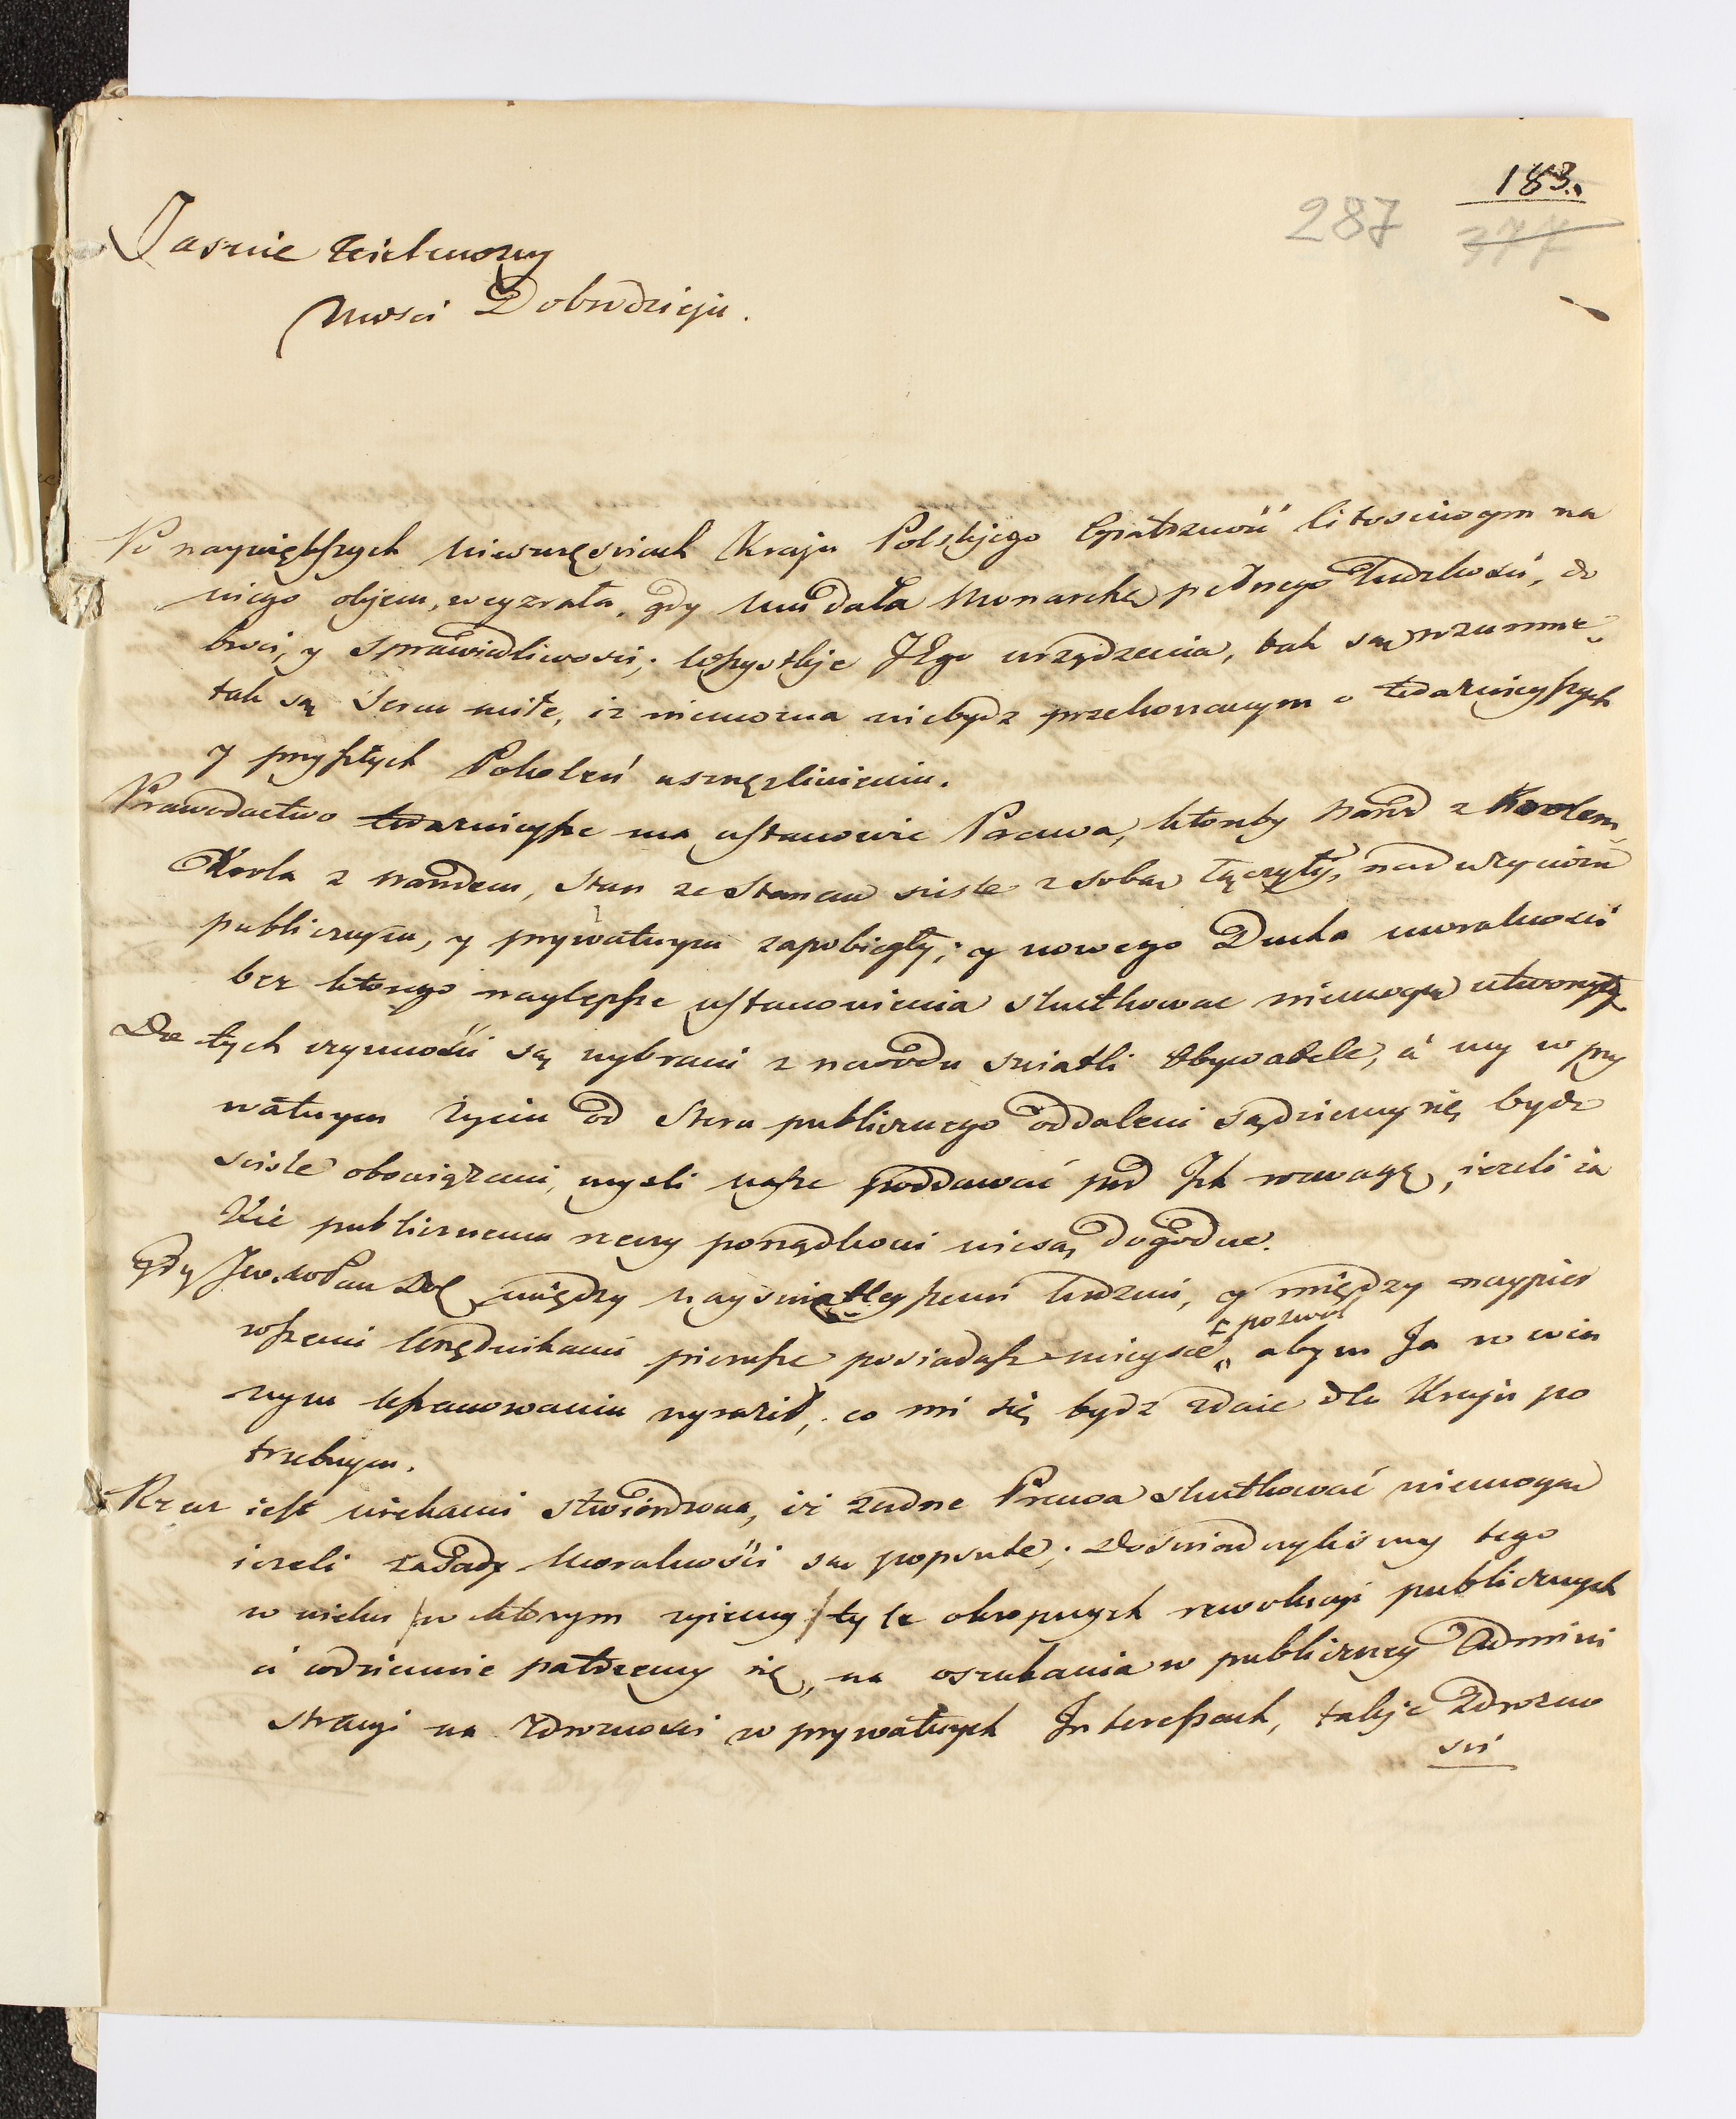 183.
287 377
Jasnie Wielmozny
Mosci Dobrodzieju.
Po naywiększych nieszczęsciach Kraju Polskiego Opatrzność litosciwym na
niego okiem, weyzrała, gdy mu dała Monarchę pełnego ludzkości, do
broci, y sprawiedliwosci; wszystkie JEgo urządzenia, tak są rozumne
tak są Sercu miłe, iz niemozna niebydz przekonanym o twarznieyszych
y przyszłych Pokoleń uszczęsliwieniu.
Prawodactwo twarznieysze ma ustanowic Prawa, ktoreby Narod z Krolem,
Krola z narodem, Stan ze Stanem scisle z sobą łączyły, nad uzyciom
publicznym, y prywatnym zapobiegły; y nowego Ducha moralnosci
bez ktorego naylepsze ustanowienia skutkowac niemogą utworzyły
Do tych czynności są wybrani z narodu swiatli Obywatele, a my w pry
watnym życiu od Steru publicznego oddaleni sądziemy się bydz
scisle obowiązani, mysli nasze poddawać pod Jch rozwagę, iezeli ia
kie publicznemu rzeczy porządkowi niesą dogodne.
gdy Jw. WPan Dob między nayswiatleyszemi ludzmi, y między naypier
wszemi Urzędnikami piersze posiadasz mieysce, pozwol abym Ja w win
nym uszanowaniu wyraził, co mi się bydz zdaie dla Kraju po
trzebnym.
Rzecz iest wiekami stwierdzona, iż żadne Prawa skutkować niemogą
iezeli zasady moralności są popsute; Doswiadczylismy tego
w wieku /w ktorym zyiemy/ tyle okropnych rewolucyi publicznych
a codziennie patrzemy się, na oszukania w publiczney Admini
stracyi na zdroznosci w prywatnych Jnteressach, takie zdrozno
sci